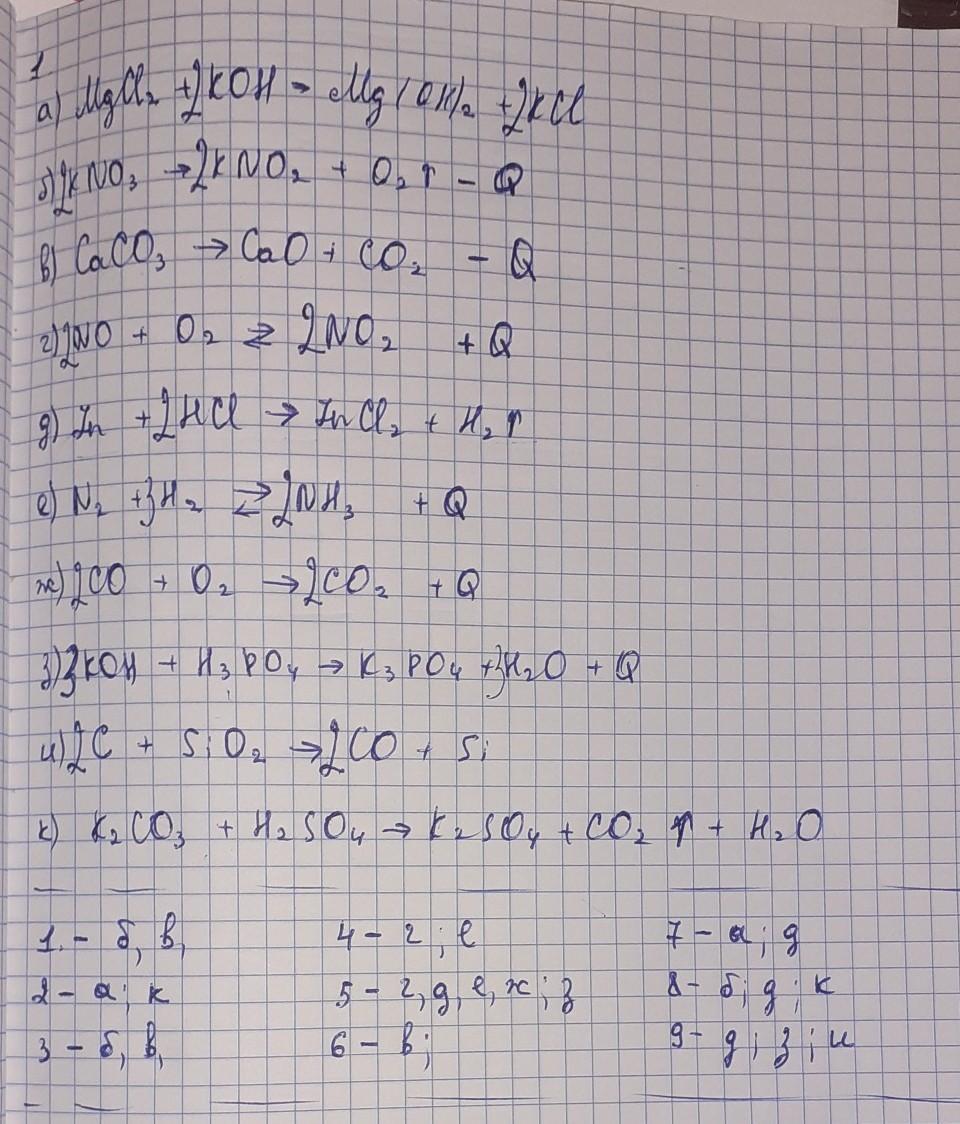 1
а) MgCl₂ +2KOH = Mg(OH)₂ +2KCl
б) 2KNO₃ → 2KNO₂ + O₂↑ – Q
в) CaCO₃ → CaO + CO₂ – Q
г) 2NO + O₂ ⇄ 2NO₂ + Q
д) Zn +2HCl → ZnCl₂ + H₂↑
е) N₂ +3H₂ ⇄ 2NH₃ + Q
ж) 2CO + O₂ → 2CO₂ + Q
з) 3KOH + H₃PO₄ → K₃PO₄ +3H₂O + Q
и) 2C + SiO₂ → 2CO + Si
к) K₂CO₃ + H₂SO₄ → K₂SO₄ + CO₂ ↑ + H₂O
1. – б, в, 4 – г; е 7 – а; д
2 – а; к 5 – г, д, е, ж; з 8 – б; д; к
3 – б, в, 6 – в; 9 – д; з; и